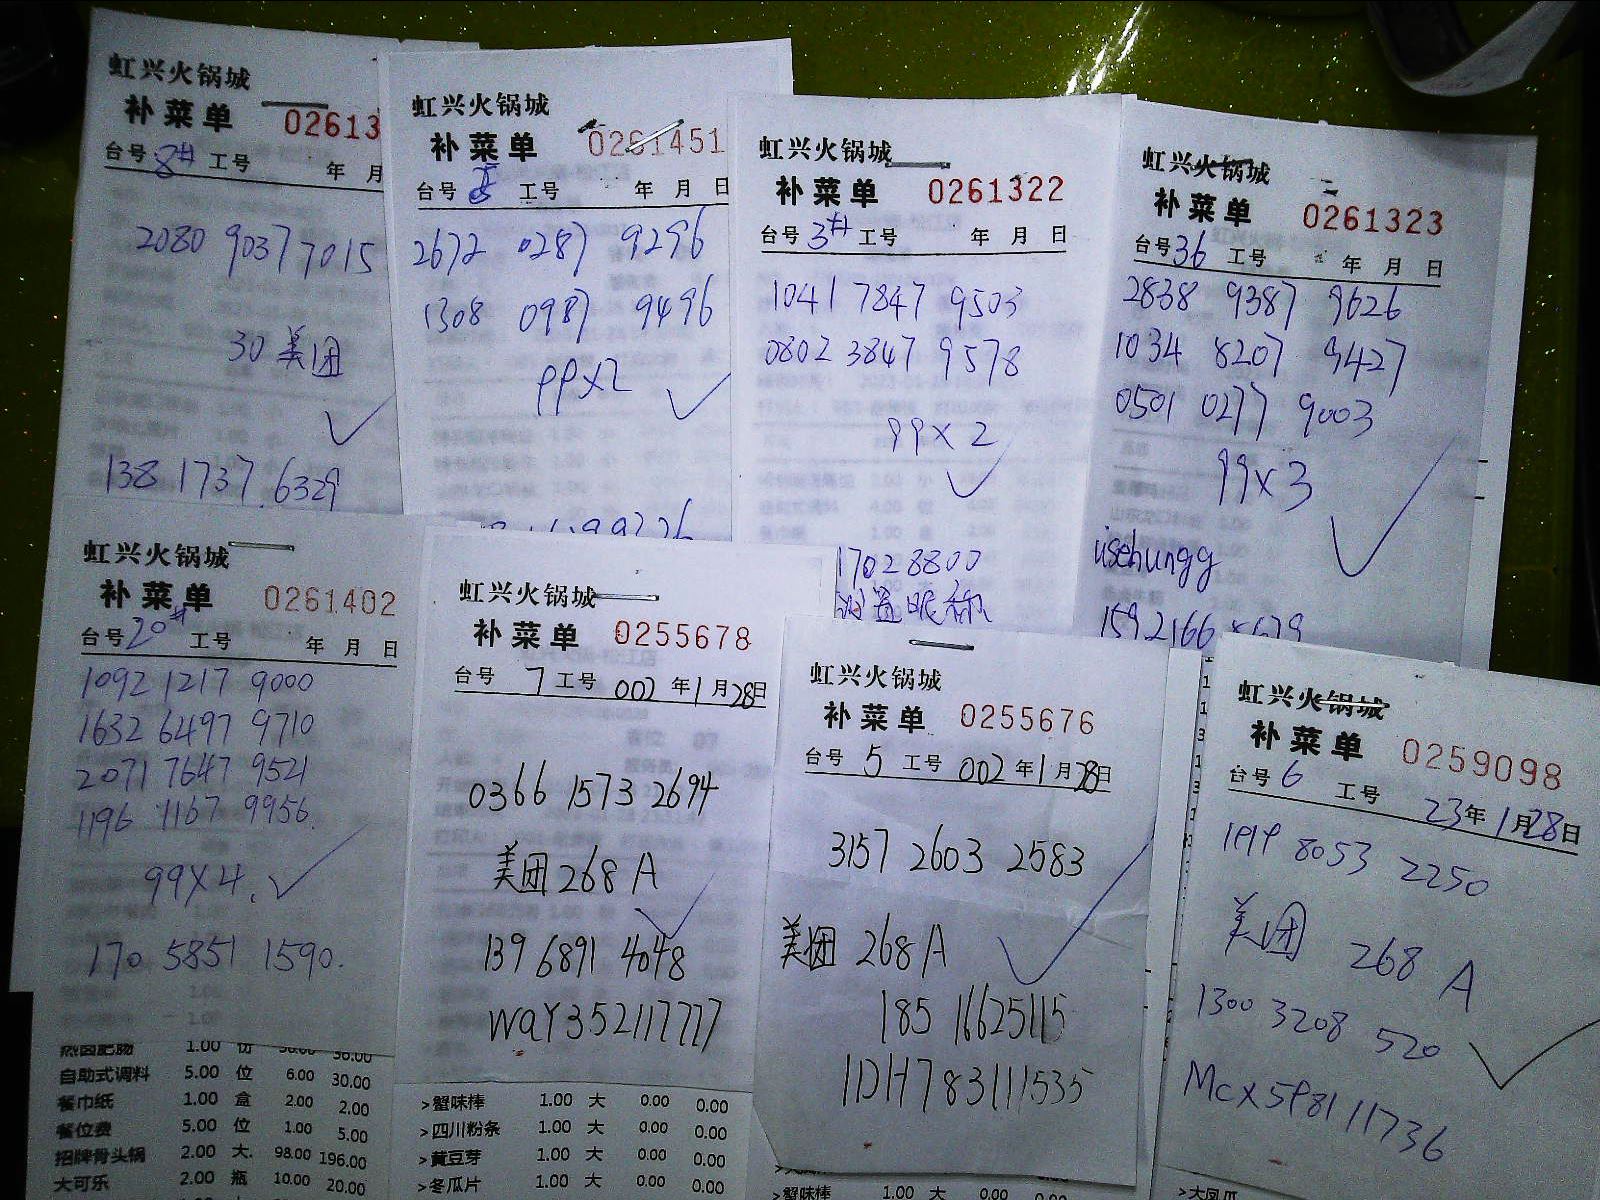 虹兴火锅城
补菜单 02613
台号 8# 工号 年 月
2080 9037 7015
30 美团
138 1737.6329
虹兴火锅城
补菜单 0261451
台号 工号 年 月 日
2672 0287 9296
1308 0987 9496
99X2
虹兴火锅城
补菜单 0261322
台号 3# 工号 年 月 日
1041 7847 9503
0802 3847 9578
99X2
17028800
设置昵称
虹兴火锅城
补菜单 0261323
台号 36 工号 年 月 日
2838 9387 9626
1034 8207 9427
0501 0277 9003
99X3
usehungg
虹兴火锅城
补菜单 0261402
台号 20# 工号 年 月 日
1092 1217 9000
1632 6497 9710
2071 7647 9521
1196 1167 9956.
99X4.
170 5851 1590.
自助式调料 5.00 位 6.00 30.00
餐巾纸 1.00 盒 2.00 2.00
餐位费 5.00 位 1.00 5.00
招牌骨头锅 2.00 大. 98.00 196.00
大可乐 2.00 瓶 10.00 20.00
虹兴火锅城
补菜单 0255678
台号 7 工号 002 年 1 月 28 日
0366 1573 2694
美团 268 A
139 6891 4048
WaY352117777
>蟹味棒 1.00 大 0.00 0.00
>四川粉条 1.00 大 0.00 0.00
>黄豆芽 1.00 大 0.00 0.00
>冬瓜片 1.00 大 0.00 0.00
虹兴火锅城
补菜单 0255676
台号 5 工号 002 年 1 月 28 日
3157 2603 2583
美团 268 A
185 16625115
IDH783111535
>蟹味棒 1.00 大 0.00 0.00
虹兴火锅城
补菜单 0259098
台号 6 工号 23年 1月28日
1919 8053 2250
美团 268 A
1300 3208 520
Mcx598111736
>大凤爪